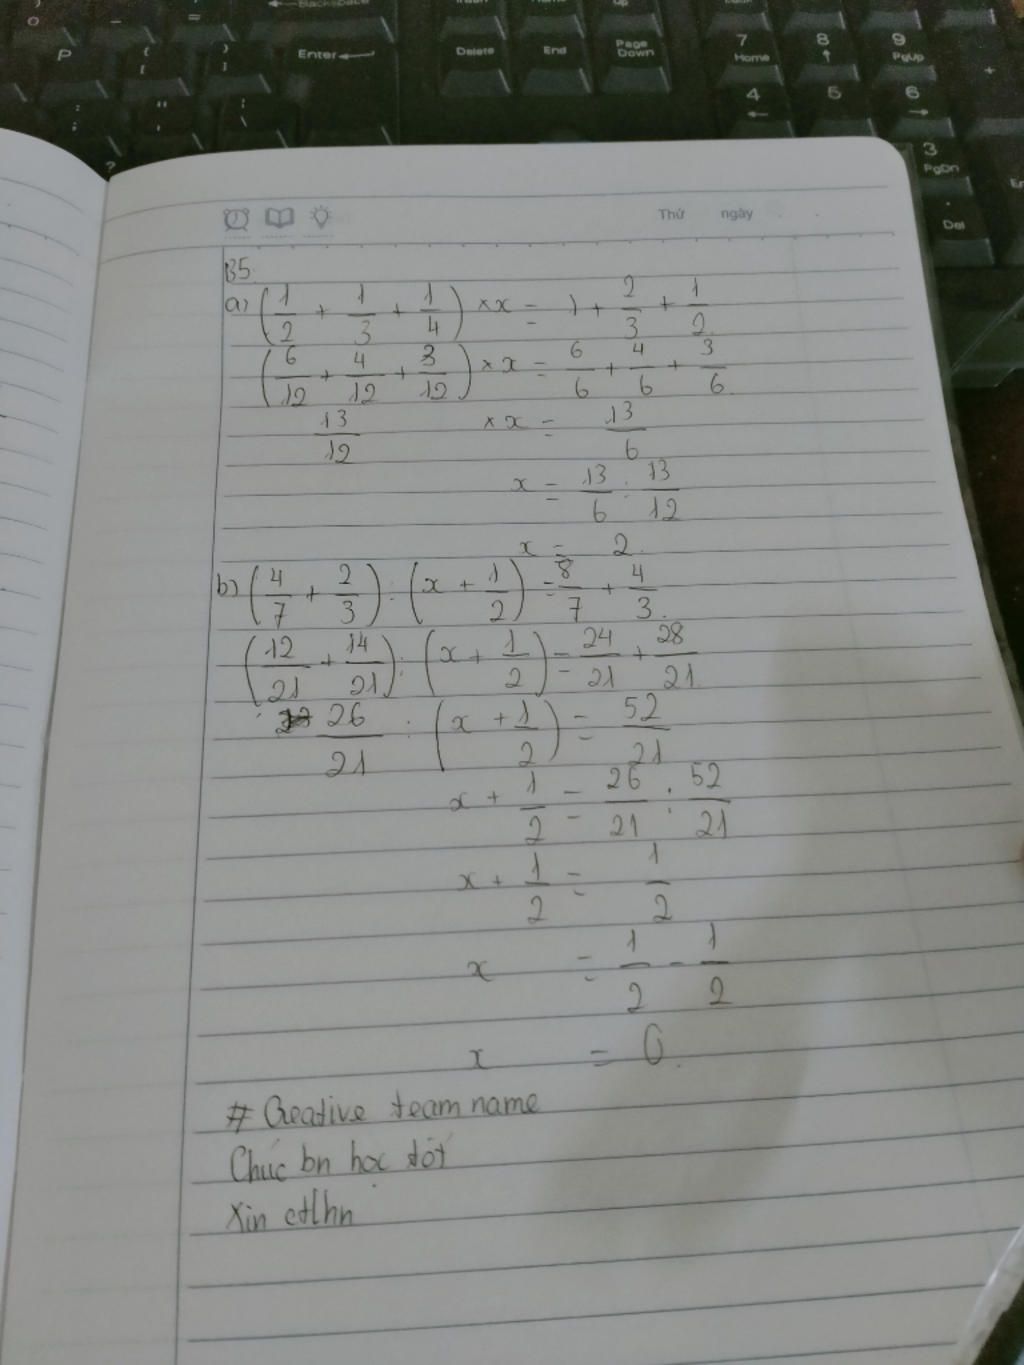 P
Enter
Delete
End
Page Down
7 Home
8
9 PgUp
4
5
6
3 PgDn
Del
Thứ ngày
B5.
a) (1/2 + 1/3 + 1/4) × x = 1 + 2/3 + 1/2
(6/12 + 4/12 + 3/12) × x = 6/6 + 4/6 + 3/6
13/12 × x = 13/6
x = 13/6 : 13/12
x = 2
b) (4/7 + 2/3) : (x + 1/2) = 8/7 + 4/3
(12/21 + 14/21) : (x + 1/2) = 24/21 + 28/21
26/21 : (x + 1/2) = 52/21
x + 1/2 = 26/21 : 52/21
x + 1/2 = 1/2
x = 1/2 - 1/2
x = 0.
# Creative team name
Chúc bn học tốt
Xin ctlhn